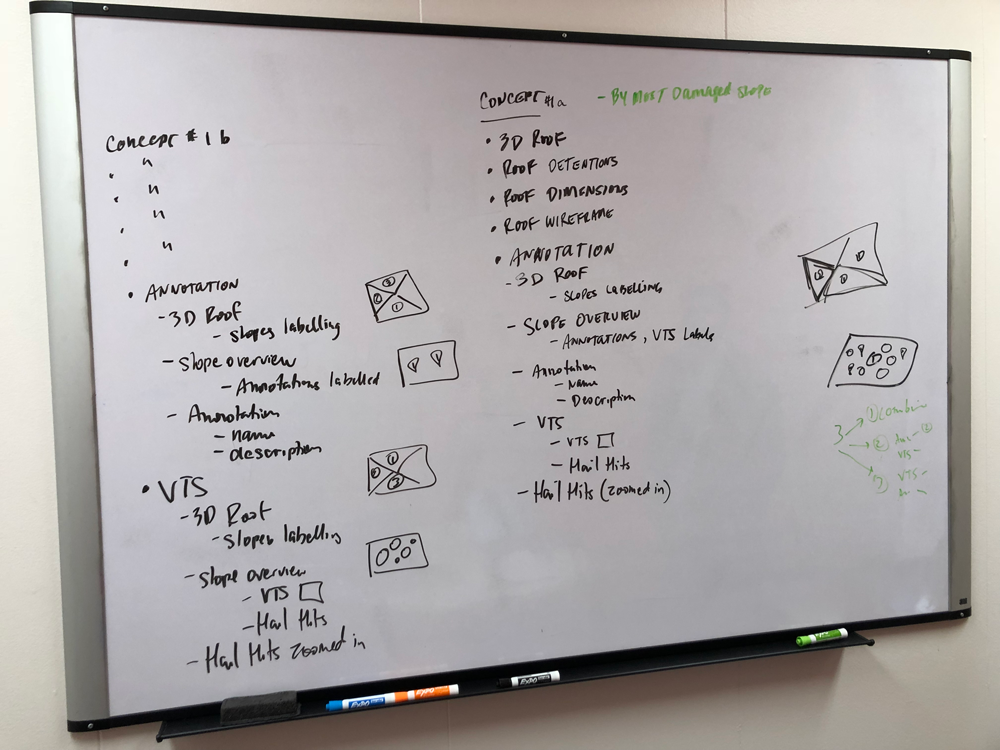 Concept #1b
"
"
"
"
• ANNOTATION
- 3D Roof
- Slopes labelling
- Slope overview
- Annotations labelled
- Annotation
- name
- description
• VTS
- 3D Roof
- Slopes labelling
- Slope overview
- VTS
- Hail Hits
- Hail Hits zoomed in
CONCEPT #1a - BY MOST Damaged SLOPE
• 3D ROOF
• ROOF DETENTIONS
• ROOF DIMENSIONS
• ROOF WIREFRAME
• ANNOTATION
- 3D ROOF
- SLOPES LABELLING
- SLOPE OVERVIEW
- ANNOTATIONS, VTS Labels
- Annotation
- Name
- Description
- VTS
- VTS
- Hail Hits
- Hail Hits (zoomed in)
3
1
2
VTS -
VTS -
EXPO
EXPO
EXPO